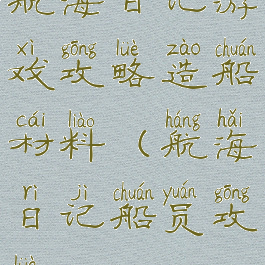 航海日记游
xì gōng lüè zào chuán
戏攻略造船
cái liào háng hǎi
材料（航海
rì jì chuán yuán gōng
日记船员攻
lüè